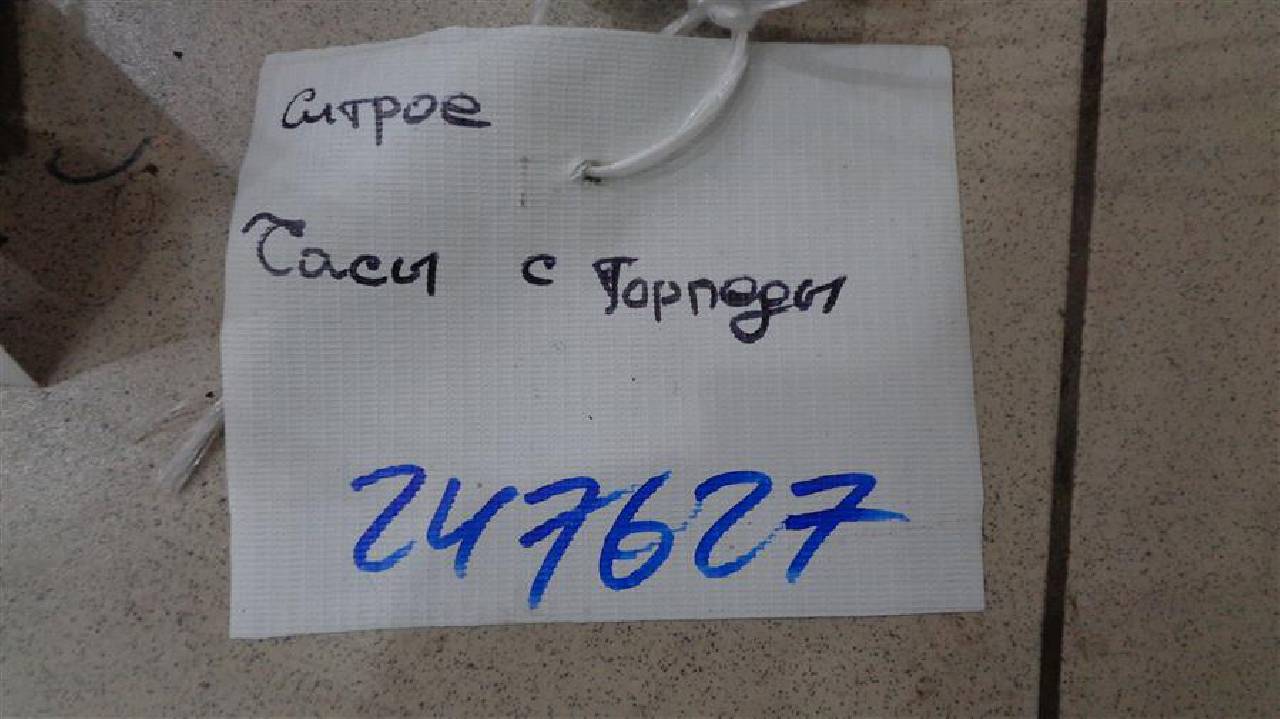 Ситрое
Часы с Торпеды
247627